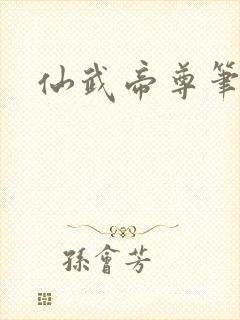 仙武帝尊筆
孫會芳